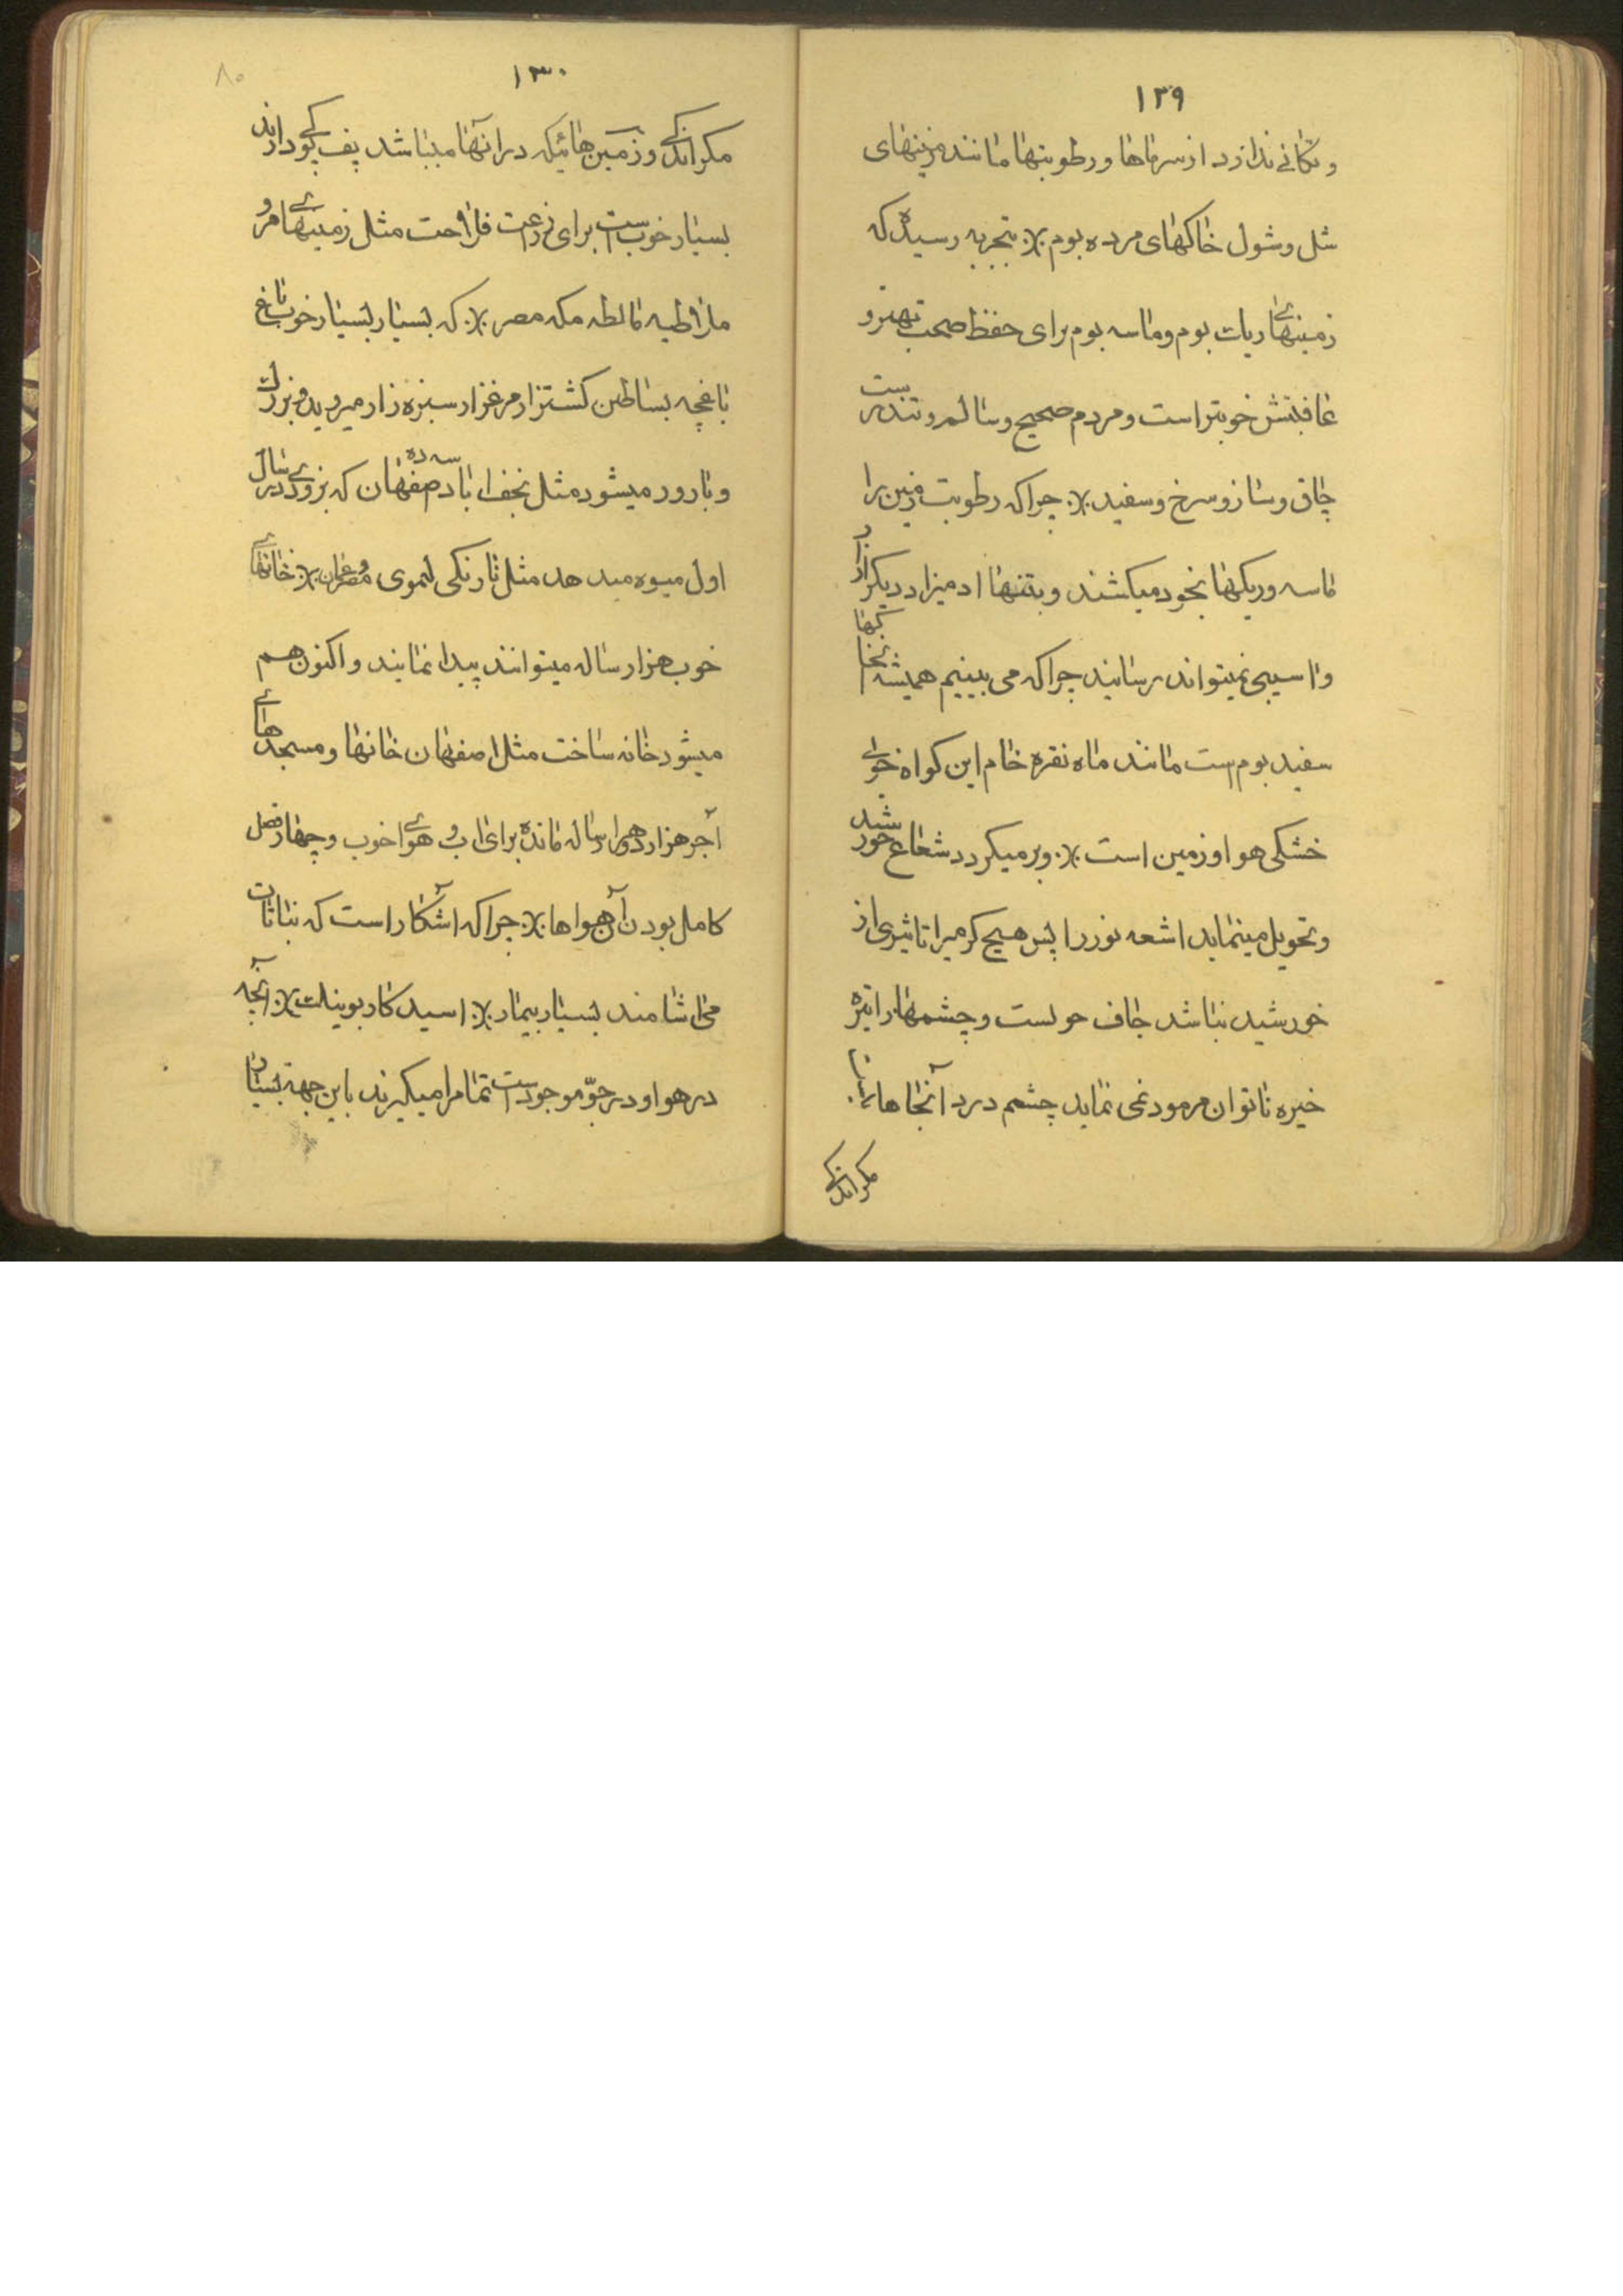 ۱۲۹
و تکانی ندارد از سرماها و رطوبتها مانند زمینهای
شل و شول خاکهای مرده بوم ٪ بتجربه رسیده که
زمینهای ریات بوم و ماسه بوم برای حفظ صحت بهتر و
عاقبتش خوبتر است و مردم صحیح و سالم و تندرست
چاق و ساز و سرخ و سفید ٪ چرا که رطوبت زمین را
ماسه و ریکها بخود میکشند و بتنها ادمیزاد دیگر
و اسیبی نمیتواند رسانید چرا که می بینیم همیشه
سفید بوم ست مانند ماه نقره خام این کواه خوبی
خشکی هوا و زمین است ٪ و برمیکردد شعاع خورشید
و تحویل مینماید اشعه نور را پس هیچ کرمیرا تاثیری از
خورشید نباشد و چشمها را تیره
خیره ناتوان نمی نماید چشم درد آنجاها
مکرانکی
۱۳۰
۸۰
مکراندکی و زمین هائیکه در آنها میباشد پف کپو دارند
بسیار خوب ست برای زرعت فلاحت مثل زمینهای مرو
مالطه مکه مصر ٪ که بسیار بسیار خوب باغ
باغچه بساطین کشتزار مرغزار سبزه زار میروید و بزرک
و بارور میشود مثل نجف اباد سه ده صفهان که بزودی در سال
اول میوه میدهد مثل نارنکی لیموی ٪ خانهای
خوب هزار ساله میتوانند پیدا نمایند و اکنون هم
میشود خانه ساخت مثل اصفهان خانها و مسجدهای
آجر هزار ساله مانده برای اب و هوای خوب و چهار فصل
کامل بودن آن هواها ٪ چرا که آشکار است که نباتات
می اشامند بسیار بیمار ٪ اسید کاربونیک ٪ آنچه
در هوا و در جوّ موجود ست تمام را میکیرند باین جهة